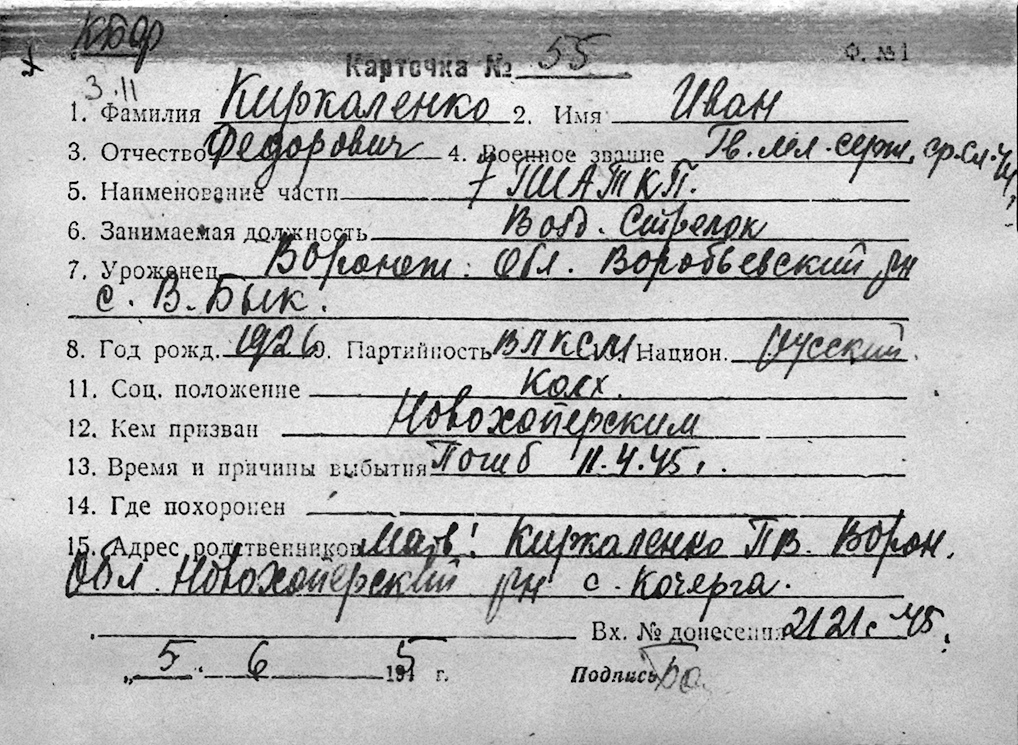 КБФ
Карточка № 55 Ф. №1
3.11
1. Фамилия Киркаленко 2. Имя Иван
3. Отчество Федорович 4. Военное звание Гв. мл. серж. ср.сл.
5. Наименование части 7 ГШАТКП.
6. Занимаемая должность Возд. Стрелок
7. Уроженец Воронеж. Обл. Воробьевский рн
с. В. Бык.
8. Год рожд. 1926 9. Партийность ВЛКСМ Национ. Русский.
11. Соц. положение Колх.
12. Кем призван Новохоперским
13. Время и причины выбытия Погиб 11.4.45г.
14. Где похоронен
15. Адрес родственников Мать: Киркаленко П.В. Ворон.
Обл. Новохоперский рн с. Кочерга.
Вх. № донесения 2121с 45.
„5" 6 1945 г. Подпись